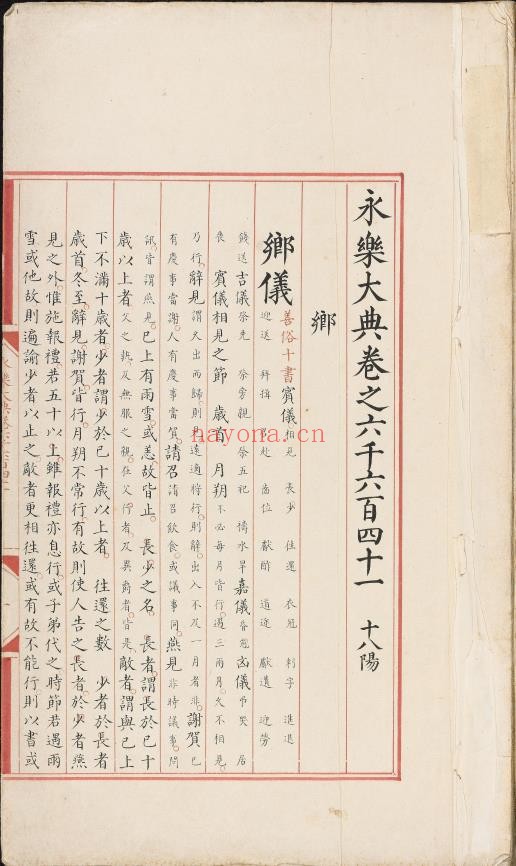 永樂大典卷之六千六百四十一 十八陽
鄉
鄉儀 善俗十書 賓儀 相見 長少 往還 衣冠 刺字 進退
迎送 拜揖 召赴 齒位 獻酢 道途 獻遺 迎勞
餞送 吉儀 祭先 祭旁親 祭五祀 禱水旱 嘉儀 昏冠 凶儀 弔哭 居
喪 賓儀相見之節 歲首 月朔 不必每月皆行過三兩月久不相見
乃行。辭見 謂久出而歸則見遠適將行則辭出入不及一月者非。謝賀 已
有慶事當謝。人有慶事當賀。請召 請召飲食。或議事同。燕見 非時議事。問
訊。皆謂燕見。已上有雨雪。或恙故皆止。 長少之名 長者。謂長於已十
歲以上者 父之執。及無服之親。在父行者。及異爵者。皆是。敵者。謂與已上
下不滿十歲者。少者。謂少於已十歲以上者。 往還之數 少者於長者
歲首。冬至。辭見謝賀。皆行。月朔不常行。有故則使人告之。長者於少者。燕
見之外。惟施報禮。若五十以上。雖報禮亦息行。或子弟代之。時節若遇雨
雪或他故則遍諭少者以止之敵者更相往還或有故不能行則以書或
nayona.cn